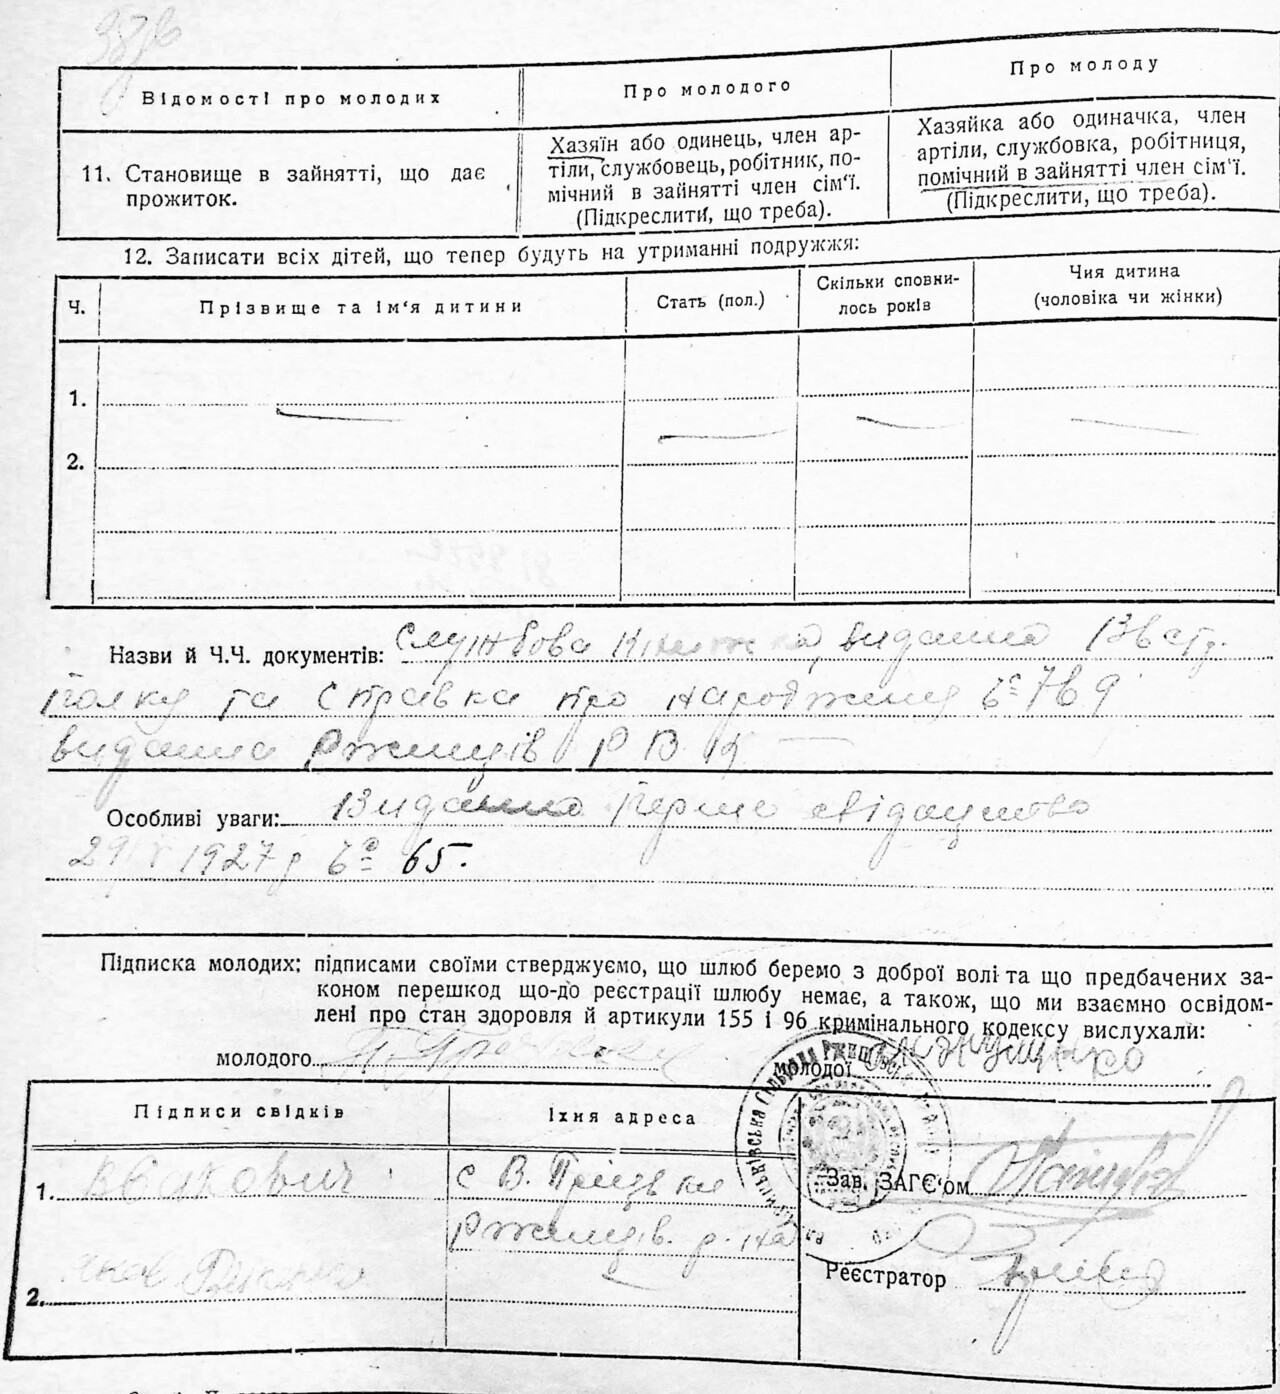 Відомості про молодих
Про молодого
Про молоду
11. Становище в зайнятті, що дає
прожиток.
Хазяїн або одинець, член ар-
тіли, службовець, робітник, по-
мічний в зайнятті член сім'ї.
(Підкреслити, що треба).
Хазяйка або одиначка, член
артіли, службовка, робітниця,
помічний в зайнятті член сім'ї.
(Підкреслити, що треба).
12. Записати всіх дітей, що тепер будуть на утриманні подружжя:
Ч.
Прізвище та ім'я дитини
Стать (пол.)
Скільки сповни-
лось років
Чия дитина
(чоловіка чи жінки)
1.
2.
Назви й Ч.Ч. документів: Службова книжка, видана
полку та справка про народження
видана Ржищів Р В К
Особливі уваги: Видано перше свідоцтво
29 1927 р 65.
Підписка молодих: підписами своїми стверджуємо, що шлюб беремо з доброї волі та що предбачених за-
коном перешкод що-до реєстрації шлюбу немає, а також, що ми взаємно освідом-
лені про стан здоровля й артикули 155 і 96 кримінального кодексу вислухали:
молодого
молодої
Підписи свідків
Їхня адреса
1.
с В. Пріцьки
Ржищів. р. на
2.
Зав. ЗАГС'ом
Реєстратор